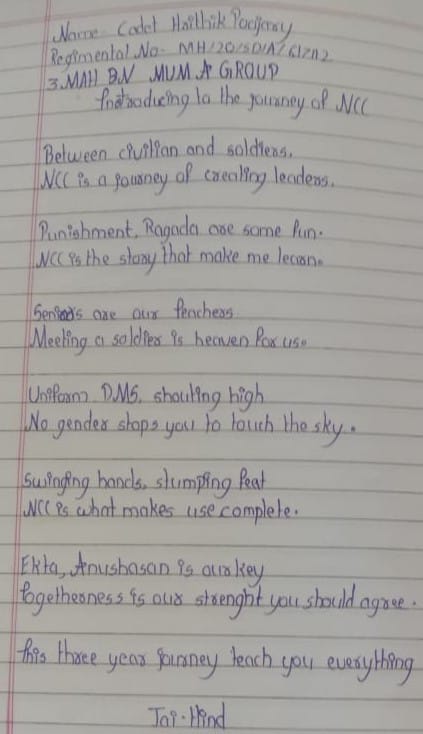 Name Cadet Hrithik
Regimental No- MH/20/SD/A/
3.MAH BN MUM A GROUP
Introducing to the journey of NCC
Between civilian and soldiers,
NCC is a journey of creating leaders.
Punishment, Ragada are some fun.
NCC is the story that make me learn.
Seniors are our teachers
Meeting a soldier is heaven for us.
Uniform DMS, shouting high
No gender stops you to touch the sky.
Swinging hands, stumping feat
NCC is what makes use complete.
Ekta, Anushasan is our key
togetherness is our strenght you should agree.
this three year journey teach you everything
Jai-Hind